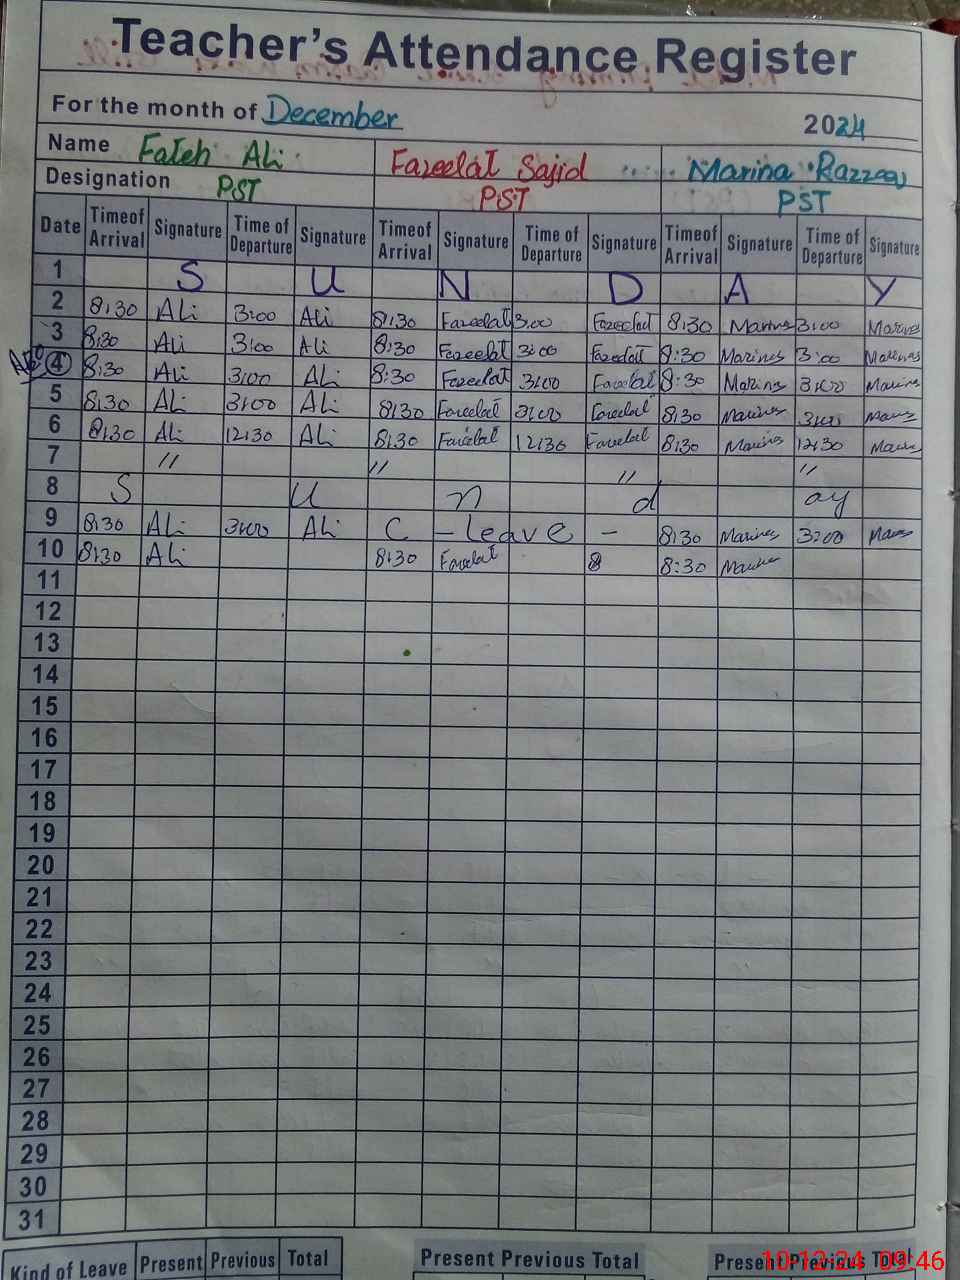 Teacher's Attendance Register
For the month of December 2024
Name Fateh Ali Fazeelat Sajid Marina Razzaq
Designation PST PST PST
Date Timeof Arrival Signature Time of Departure Signature Timeof Arrival Signature Time of Departure Signature Timeof Arrival Signature Time of Departure Signature
1 S U N D A Y
2 8:30 Ali 3:00 Ali 8:30 Fazeelat 3:00 Fazeelat 8:30 Marines 3:00 Marines
3 8:30 Ali 3:00 Ali 8:30 Fazeelat 3:00 Fazeelat 8:30 Marines 3:00 Marines
4 8:30 Ali 3:00 Ali 8:30 Fazeelat 3:00 Fazeelat 8:30 Marines 3:00 Marines
5 8:30 Ali 3:00 Ali 8:30 Fazeelat 3:00 Fazeelat 8:30 Marines 3:00
6 8:30 Ali 12:30 Ali 8:30 Fazeelat 12:30 Fazeelat 8:30 Marines 12:30
7 " " " "
8 S u n d ay
9 8:30 Ali 3:00 Ali C - leave - 8:30 Marines 3:00
10 8:30 Ali 8:30 Fazeelat 8:30
11
12
13
14
15
16
17
18
19
20
21
22
23
24
25
26
27
28
29
30
31
Kind of Leave Present Previous Total Present Previous Total Present Previous Total
10-12-24 09:46